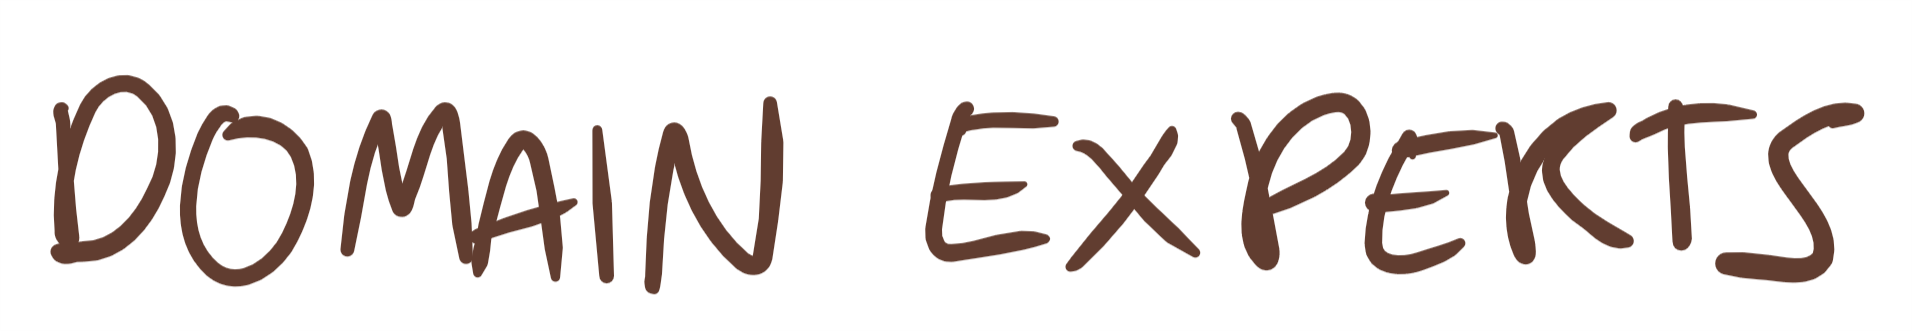 DOMAIN EXPERTS